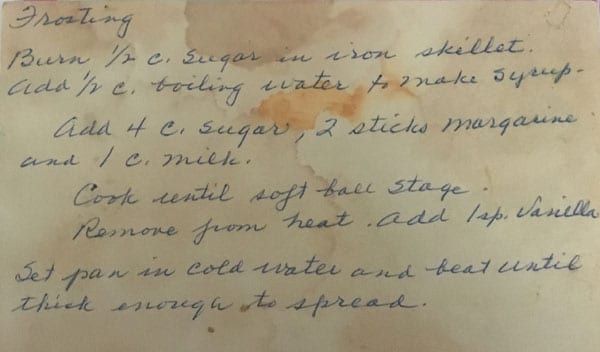 Frosting
Burn 1/2 c. Sugar in iron skillet.
Add 1/2 c. boiling water to make Syrup.
Add 4 c. Sugar, 2 sticks margarine
and 1 c. milk.
Cook until soft ball stage.
Remove from heat. Add 1 sp. Vanilla
Set pan in cold water and beat until
thick enough to spread.